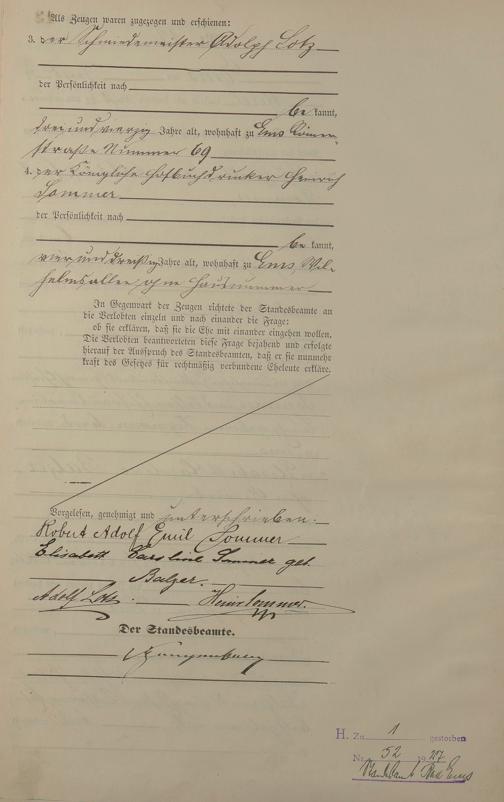 Als Zeugen waren zugezogen und erschienen:
3. der Schmiedemeister Adolph Lotz
der Persönlichkeit nach
be kannt,
Jahre alt, wohnhaft zu Ems Römer-
straße Nummer 69
4. der Königliche Hofbuchdrucker Heinrich
Sommer
der Persönlichkeit nach
be kannt,
vier und dreißig Jahre alt, wohnhaft zu Ems, Wil-
helmsallee, ohne Hausnummer
In Gegenwart der Zeugen richtete der Standesbeamte an
die Verlobten einzeln und nach einander die Frage:
ob sie erklären, daß sie die Ehe mit einander eingehen wollen.
Die Verlobten beantworteten diese Frage bejahend und erfolgte
hierauf der Ausspruch des Standesbeamten, daß er sie nunmehr
kraft des Gesetzes für rechtmäßig verbundene Eheleute erkläre.
Vorgelesen, genehmigt und unterschrieben:
Robert Adolf Emil Sommer
Elisabeth Caroline Sommer geb.
Balzer.
Adolf Lotz. Heinr Sommer.
Der Standesbeamte.
H. Zu 1 gestorben
Nr. 52 1927
Standesamt Bad Ems